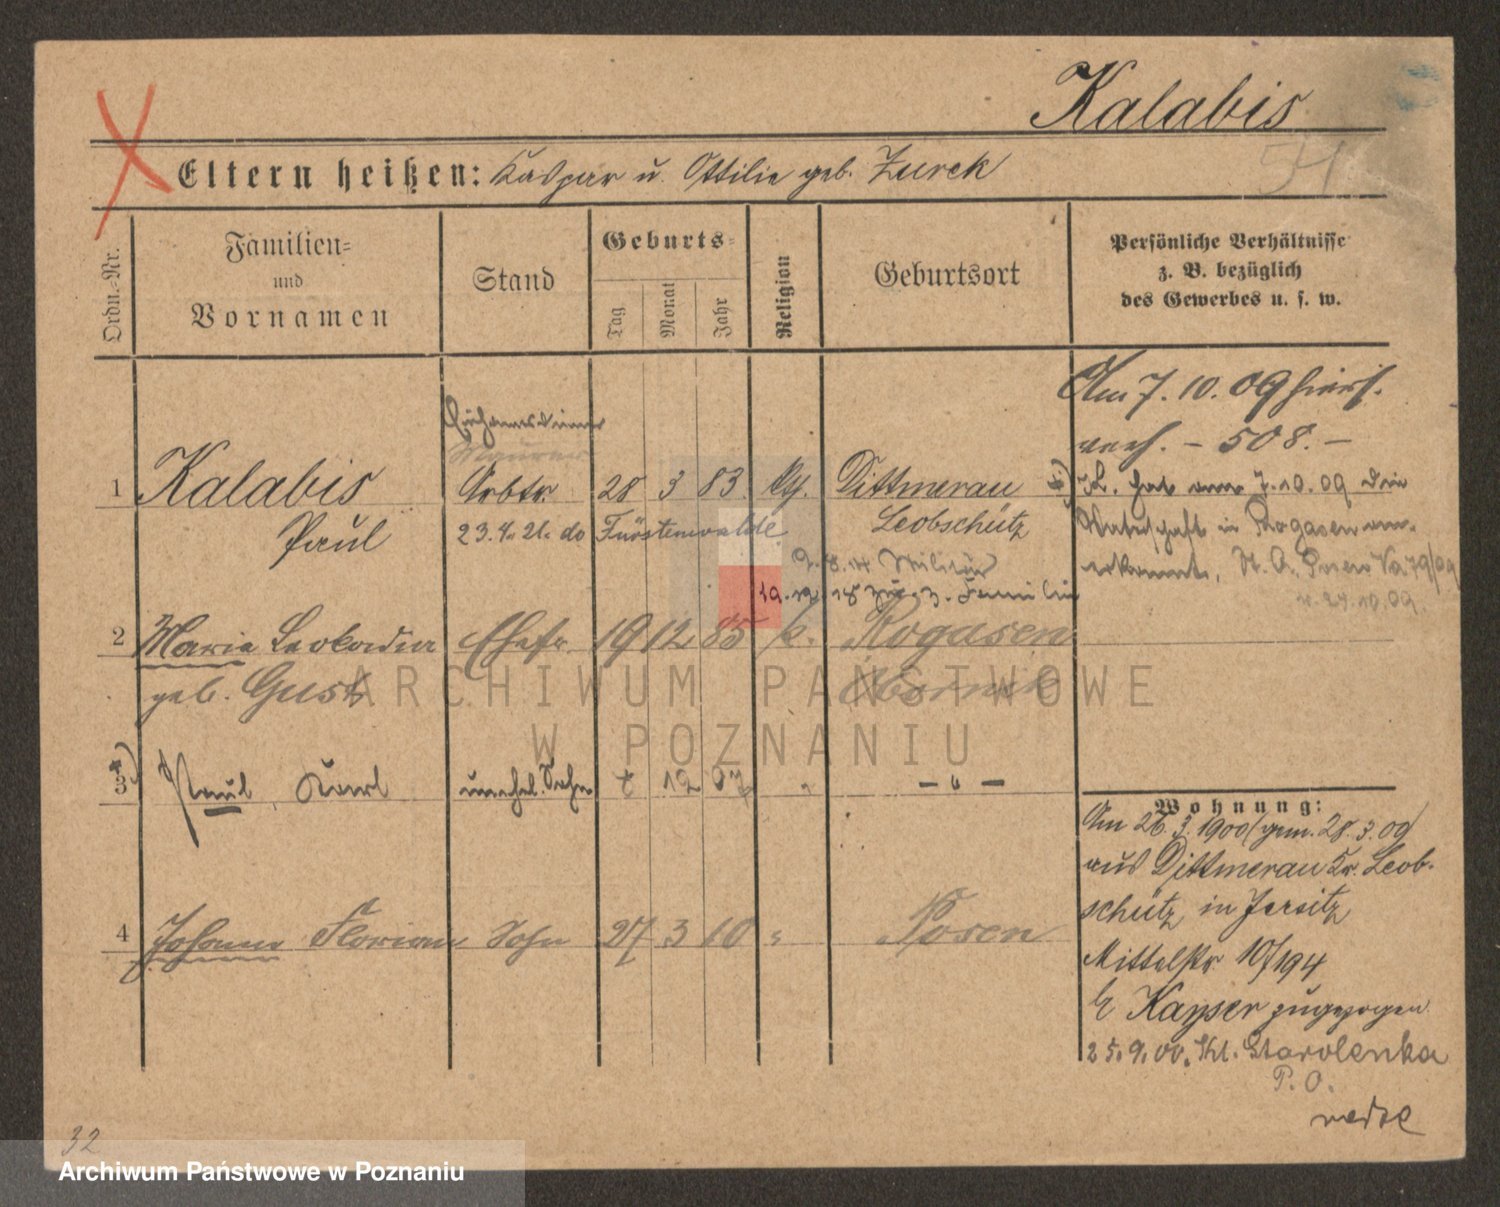 Kalabis
Eltern heißen: Kaspar u. Ottilie geb. Zurek
54
Ordn.-Nr.
Familien-
und
Vornamen
Stand
Geburts-
Tag
Monat
Jahr
Religion
Geburtsort
Persönliche Verhältnisse
z. B. bezüglich
des Gewerbes u. s. w.
Am 7. 10. 09 hier
verh. - 508. -
Maurer
1 Kalabis Arbtr. 28 3 83. Dittmerau
Paul 23.4.21. do Fürstenwalde Leobschütz
K. hat am 7.10.09 die
Vaterschaft in Rogasen an-
erkannt. St. A. Posen Va 79/09
v. 27.10.09.
9.8.14 Militär
19.12.18 zur. z. Familie
2 Maria Leokadia Ehefr. 19 12 85 k. Rogasen
geb. Gust Obornik
3 *) Paul, Karl unehel. Sohn 7 12 07 " - " -
4 Johann Florian Sohn 27 3 10 " Posen
Wohnung:
Am 26.3.1900 (gem. 28.3.00)
aus Dittmerau Kr. Leob-
schütz in Jersitz
Mittelstr. 10/194
b/ Kayser zugezogen
25.9.00. Kl. Starolenka
P. O.
32
ARCHIWUM PAŃSTWOWE
W POZNANIU
Archiwum Państwowe w Poznaniu